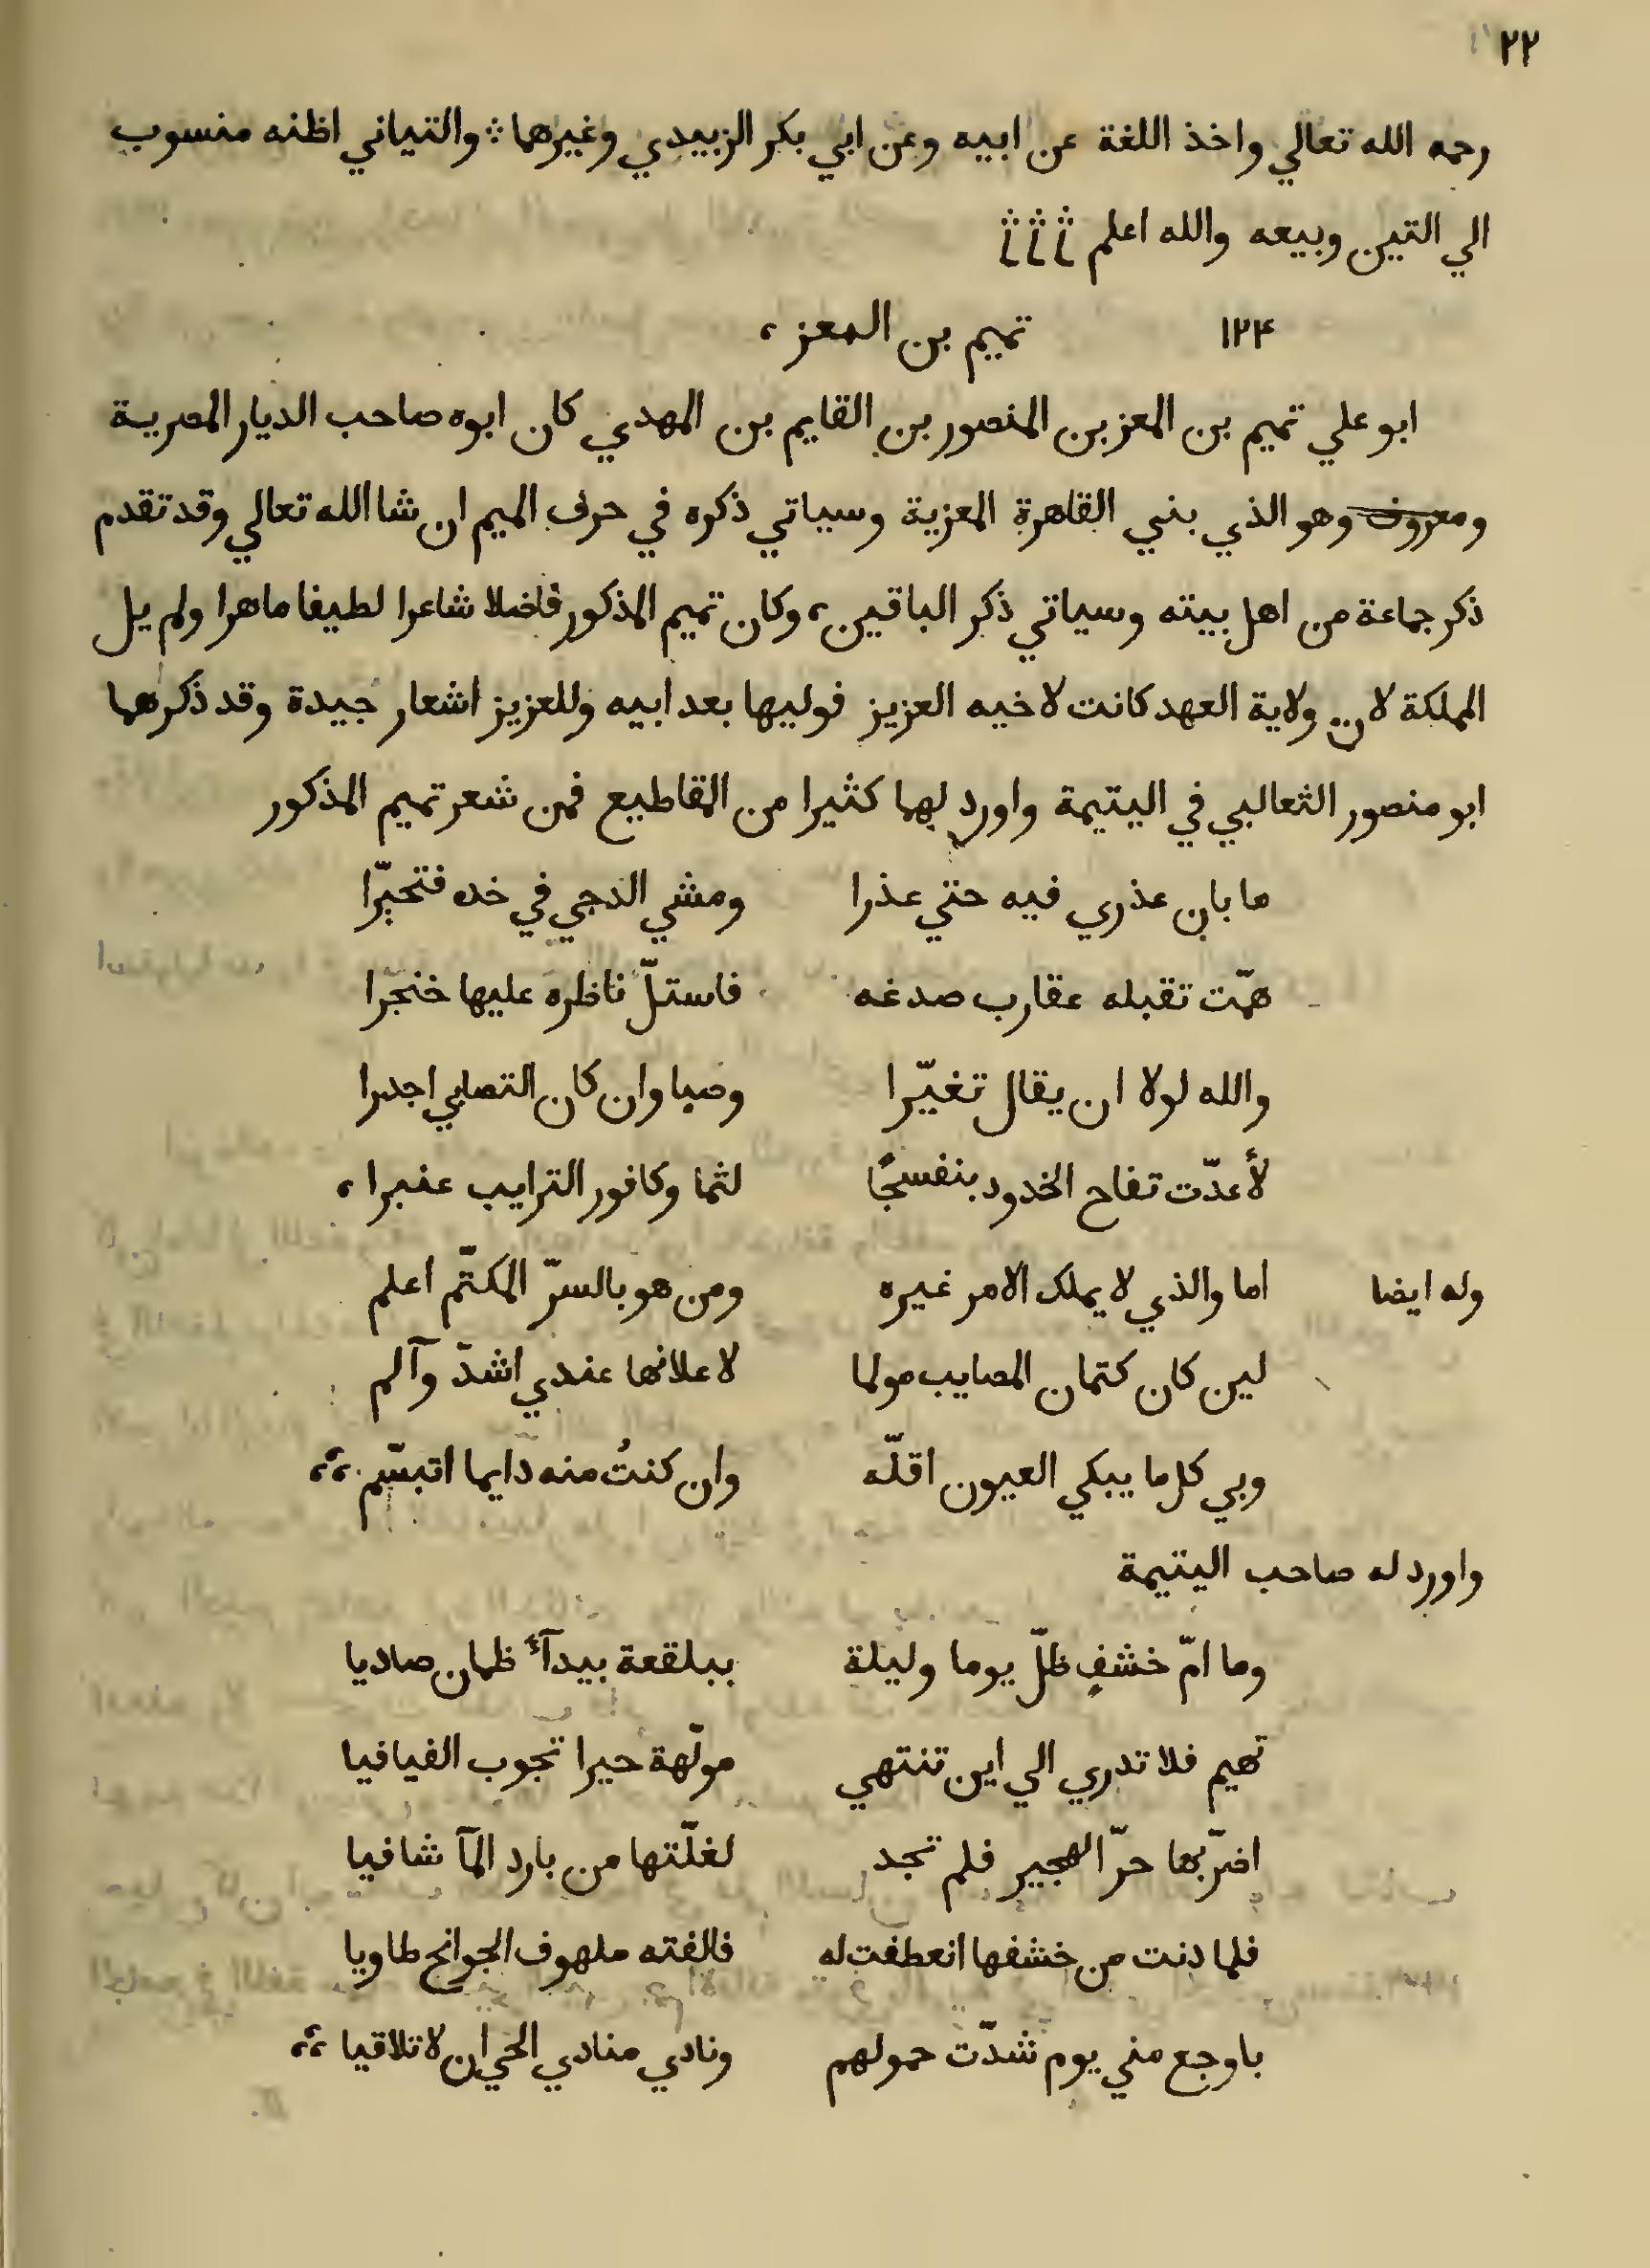 ٢٢
رحمه الله تعالي واخذ اللغة عن ابيه وعن ابي بكر الزبيدي وغيرهما ⁘ والتياني اظنه منسوب
الي التين وبيعه والله اعلم
١٢۴ تميم بن المعز ،
ابو علي تميم بن المعز بن المنصور بن القايم بن المهدي كان ابوه صاحب الديار المصرية
ومعروف وهو الذي بني القاهرة المعزية وسياتي ذكره في حرف الميم ان شا الله تعالي وقد تقدم
ذكر جماعة من اهل بيته وسياتي ذكر الباقين، وكان تميم المذكور فاضلا شاعرا لطيفا ماهرا ولم يل
المملكة لان ولاية العهد كانت لاخيه العزيز فوليها بعد ابيه وللعزيز اشعار جيدة وقد ذكرهما
ابو منصور الثعالبي في اليتيمة واورد لهما كثيرا من المقاطيع فمن شعر تميم المذكور
ما بان عذري فيه حتي عذرا ومشي الدجي في خده فتحيّرا
همّت تقبله عقارب صدغه فاستلّ ناظره عليها خنجرا
والله لولا ان يقال تغيّرا وصبا وان كان التصابي اجدرا
لأعدّت تفاح الخدود بنفسجًا لثما وكافور الترايب عنبرا ،
وله ايضا اما والذي لا يملك الامر غيره ومن هو بالسرّ المكتّم اعلم
لين كان كتمان المصايب مولما لاعلانها عندي اشدّ وآلم
وبي كل ما يبكي العيون اقلّه وان كنتُ منه دايما اتبسّم ،،
واورد له صاحب اليتيمة
وما امّ خشفٍ ظلّ يوما وليلة ببلقعة بيدآءَ ظمان صاديا
تهيم فلا تدري الي اين تنتهي مولّهة حيرا تجوب الفيافيا
اضرّ بها حرّ الهجير فلم تجد لغلّتها من بارد المآ شافيا
فلما دنت من خشفها انعطفت له فالفته ملهوف الجوانح طاويا
باوجع مني يوم شدّت حمولهم ونادي منادي الحي ان لا تلاقيا ،،